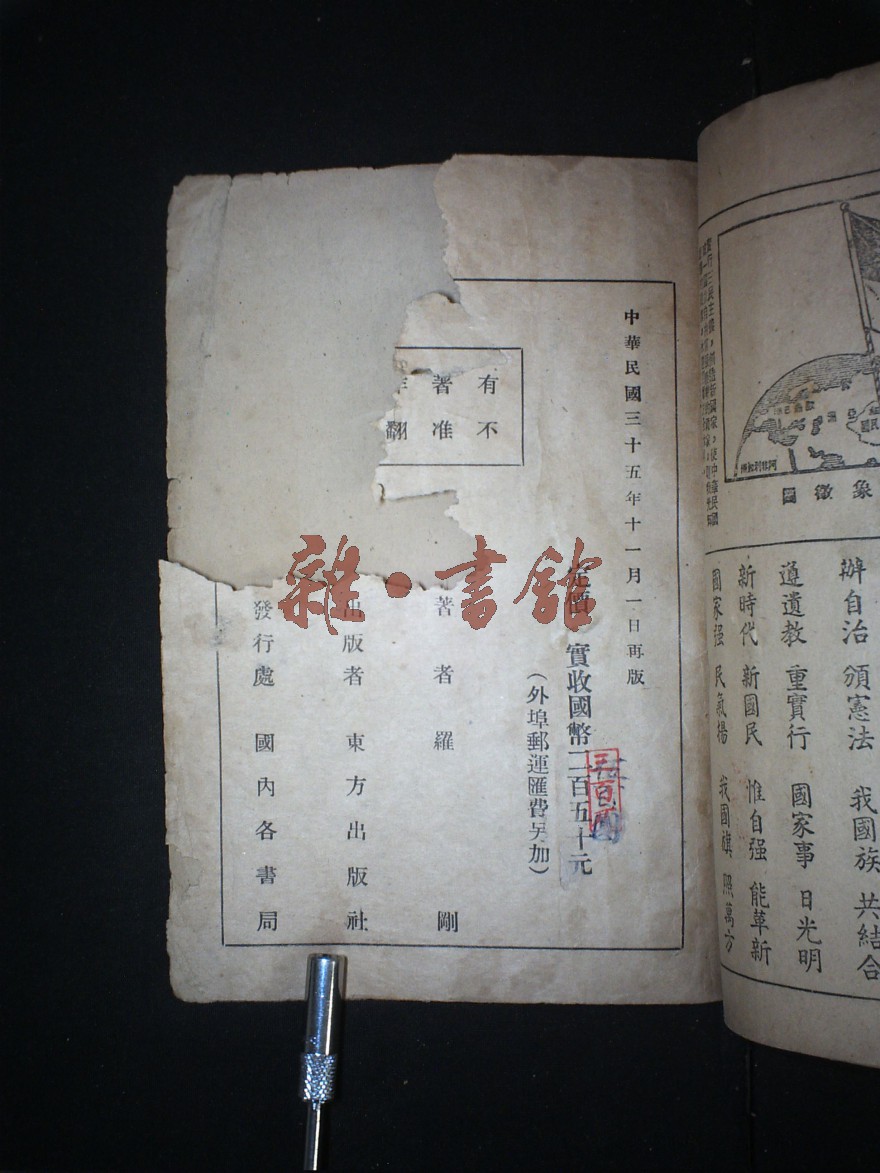 象徵圖
辦自治 頒憲法 我國族 共結合
遵遺教 重實行 國家事 日光明
新時代 新國民 惟自强 能革新
國家强 民氣揚 我國旗 照萬方
中華民國三十五年十一月一日再版
定價 實收國幣二百五十元
(外埠郵運匯費另加)
有著
不准翻
著者 羅剛
出版者 東方出版社
發行處 國內各書局
雜·書館